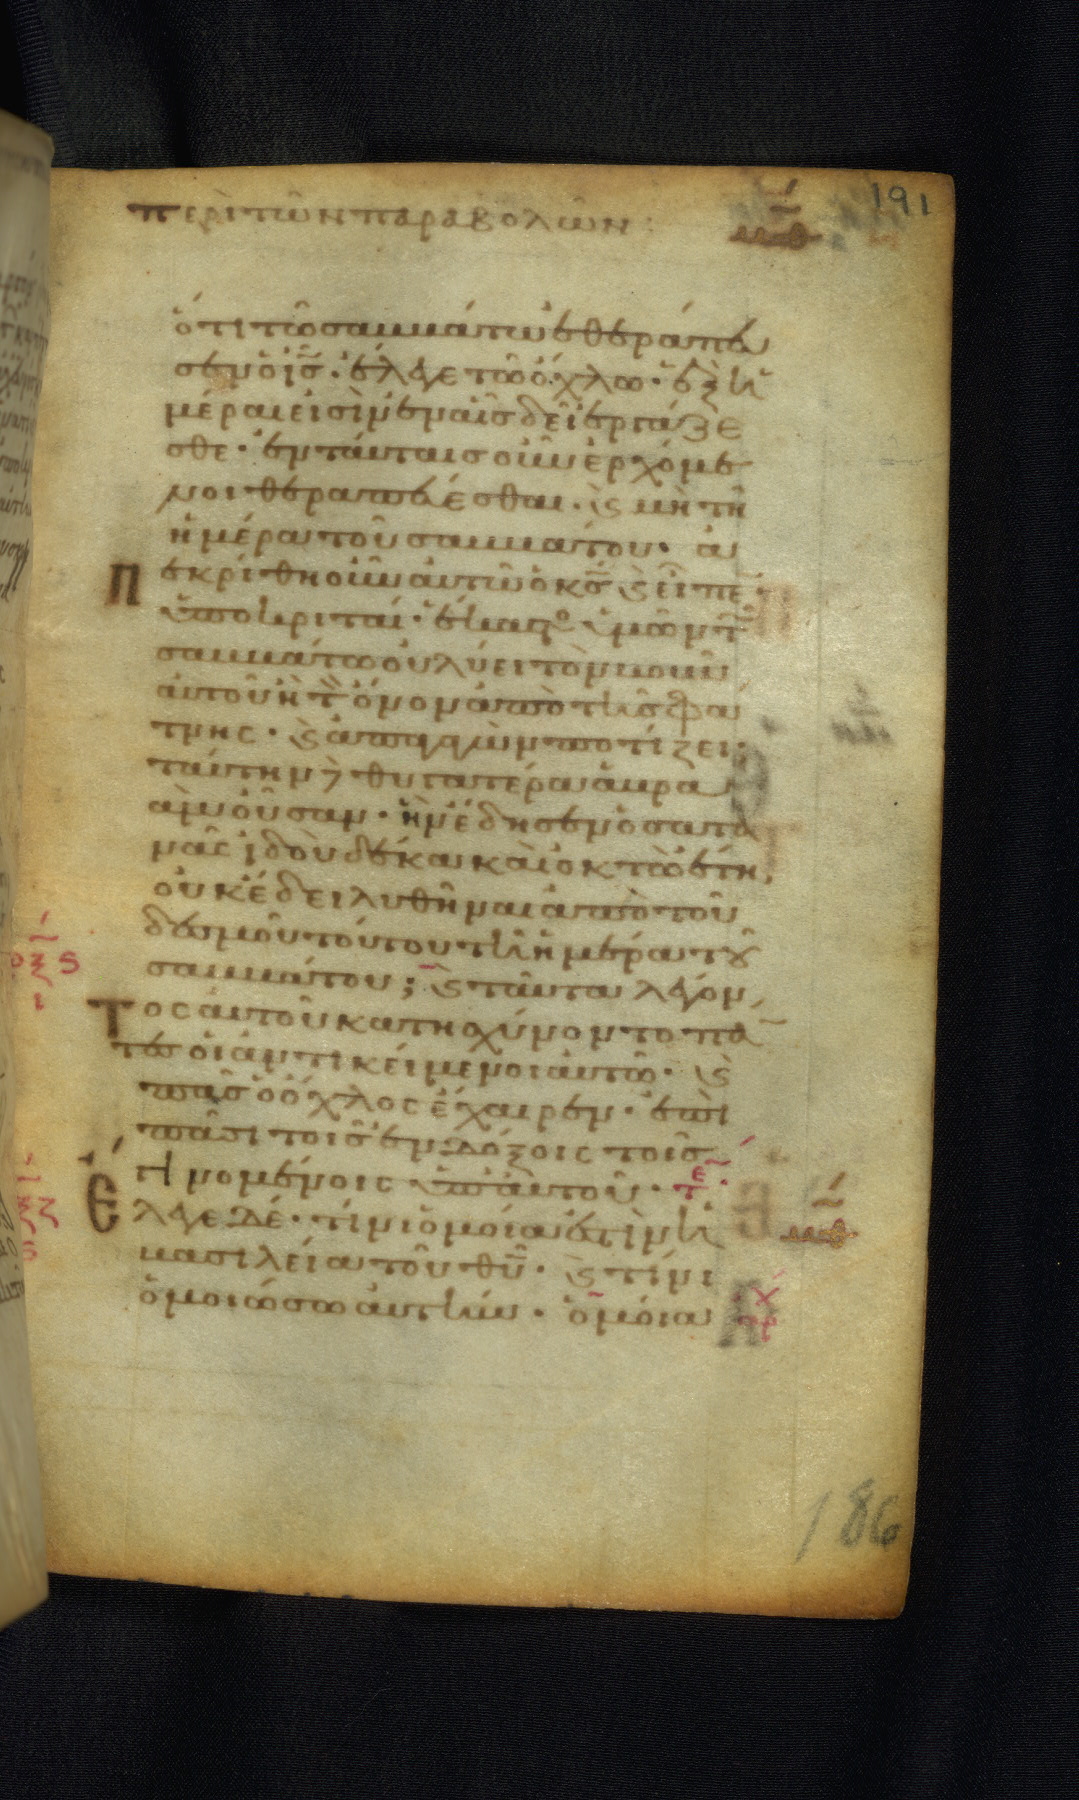 περὶ τῶν παραβολῶν :
μθ
191
ὅτι τῶ σαββάτω ἐθεράπευ
σεν ὁ ις̅. ἔλεγε τῶ ὄχλω. ἓξ ἡ
μέραι εἰσὶν ἐν αἷς δεῖ ἐργάζε
σθε. ἐν ταύταις οὖν ἐρχόμε
νοι θεραπεύεσθαι. ϗ μὴ τῆ
ἡμέρα τοῦ σαββάτου. ἀ
πεκρίθη οὖν αὐτῶ ὁ κς̅ ϗ εἶπε.
ὑποκριταί. ἕκαστο ὑμῶν τῶ
σαββάτω οὐ λύει τὸν βοῦν
αὐτοῦ ἢ τὸν ὄνον ἀπὸ τῆς φά
τνης. ϗ ἀπαγαγὼν ποτίζει.
ταύτην δὲ θυγατέρα ἀβρα
ὰμ οὖσαν. ἣν ἔδησεν ὁ σατα
νᾶς ἰδοὺ δέκα καὶ ὀκτὼ ἔτη,
οὐκ ἔδει λυθῆναι ἀπὸ τοῦ
δεσμοῦ τούτου τῆ ἡμέρα τοῦ
σαββάτου; ϗ ταῦτα λέγον
τος αὐτοῦ κατησχύνοντο πά
τες οἱ ἀντικείμενοι αὐτῶ. ϗ
πᾶς ὁ ὄχλος ἔχαιρεν. ἐπὶ
πᾶσι τοῖς ἐνδόξοις τοῖς
γινομένοις ὑπ' αὐτοῦ. τε
ἔλεγε δέ. τίνι ὁμοία ἐστὶν ἡ
μθ
βασιλεία τοῦ θυ̅. ϗ τίνι
ὁμοιώσω αὐτήν. ὁμοία
186